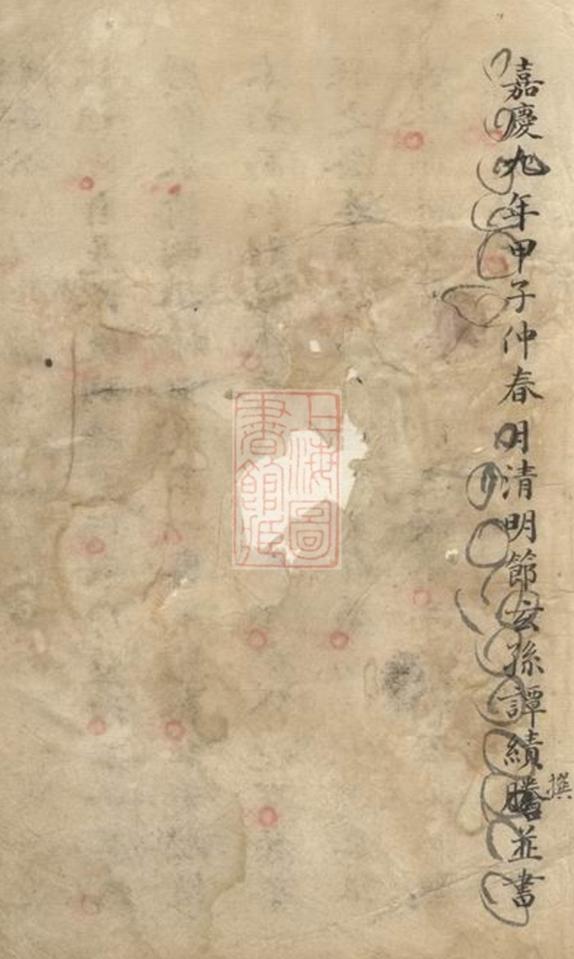 嘉慶九年甲子仲春月清明節玄孫譚績謄並書
撰
上海圖書館藏